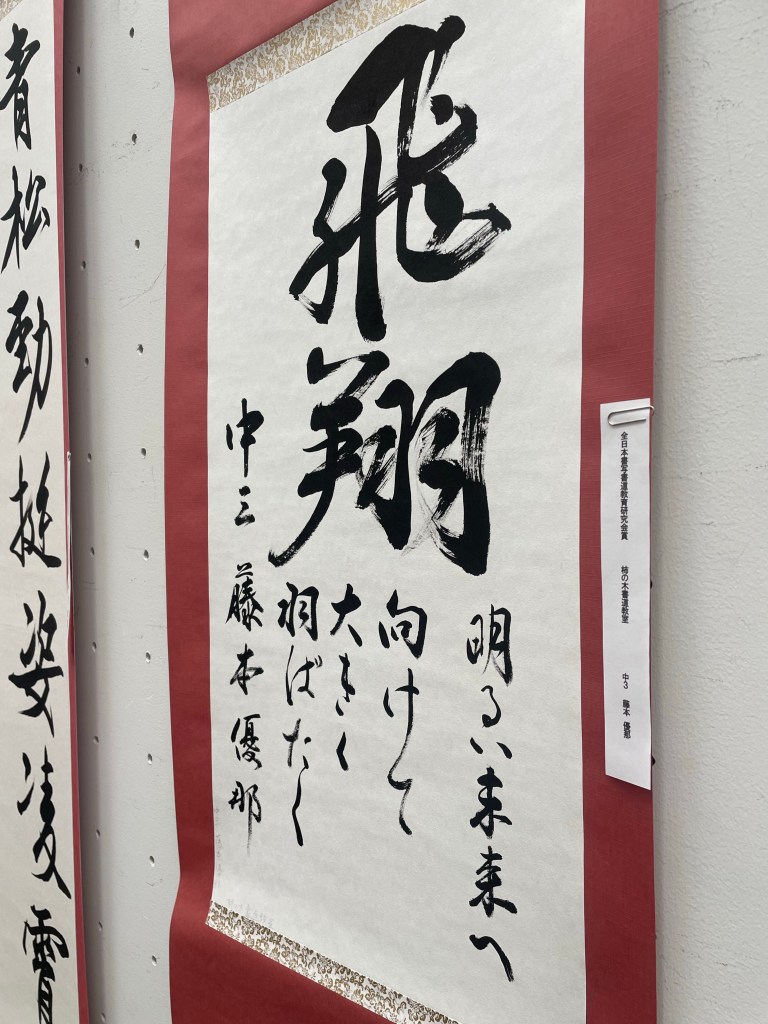 全日本書写書道教育研究会賞　柿の木書道教室　中3　藤本 優那
飛翔
明るい未来へ
向けて
大きく
羽ばたく
中三 藤本優那
青松勁挺姿凌霄